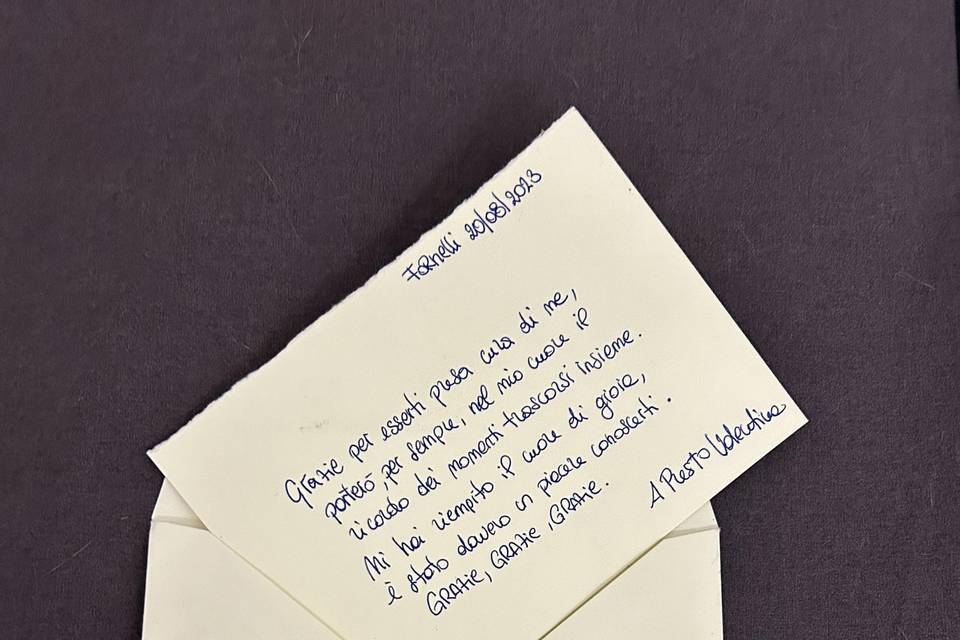 Fornelli 20/08/2023
Grazie per esserti presa cura di me,
porterò, per sempre, nel mio cuore il
ricordo dei momenti trascorsi insieme.
Mi hai riempito il cuore di gioia,
è stato davvero un piacere conoscerti.
GRAZIE, GRAZIE, GRAZIE.
A Presto Valentina